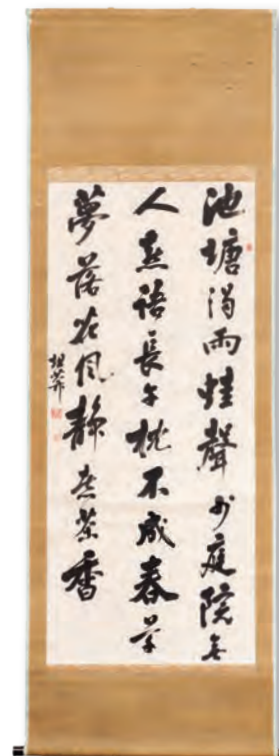 池塘渇雨蛙聲少庭院無
人燕語長午枕不成春草
夢落花風静煮茶香